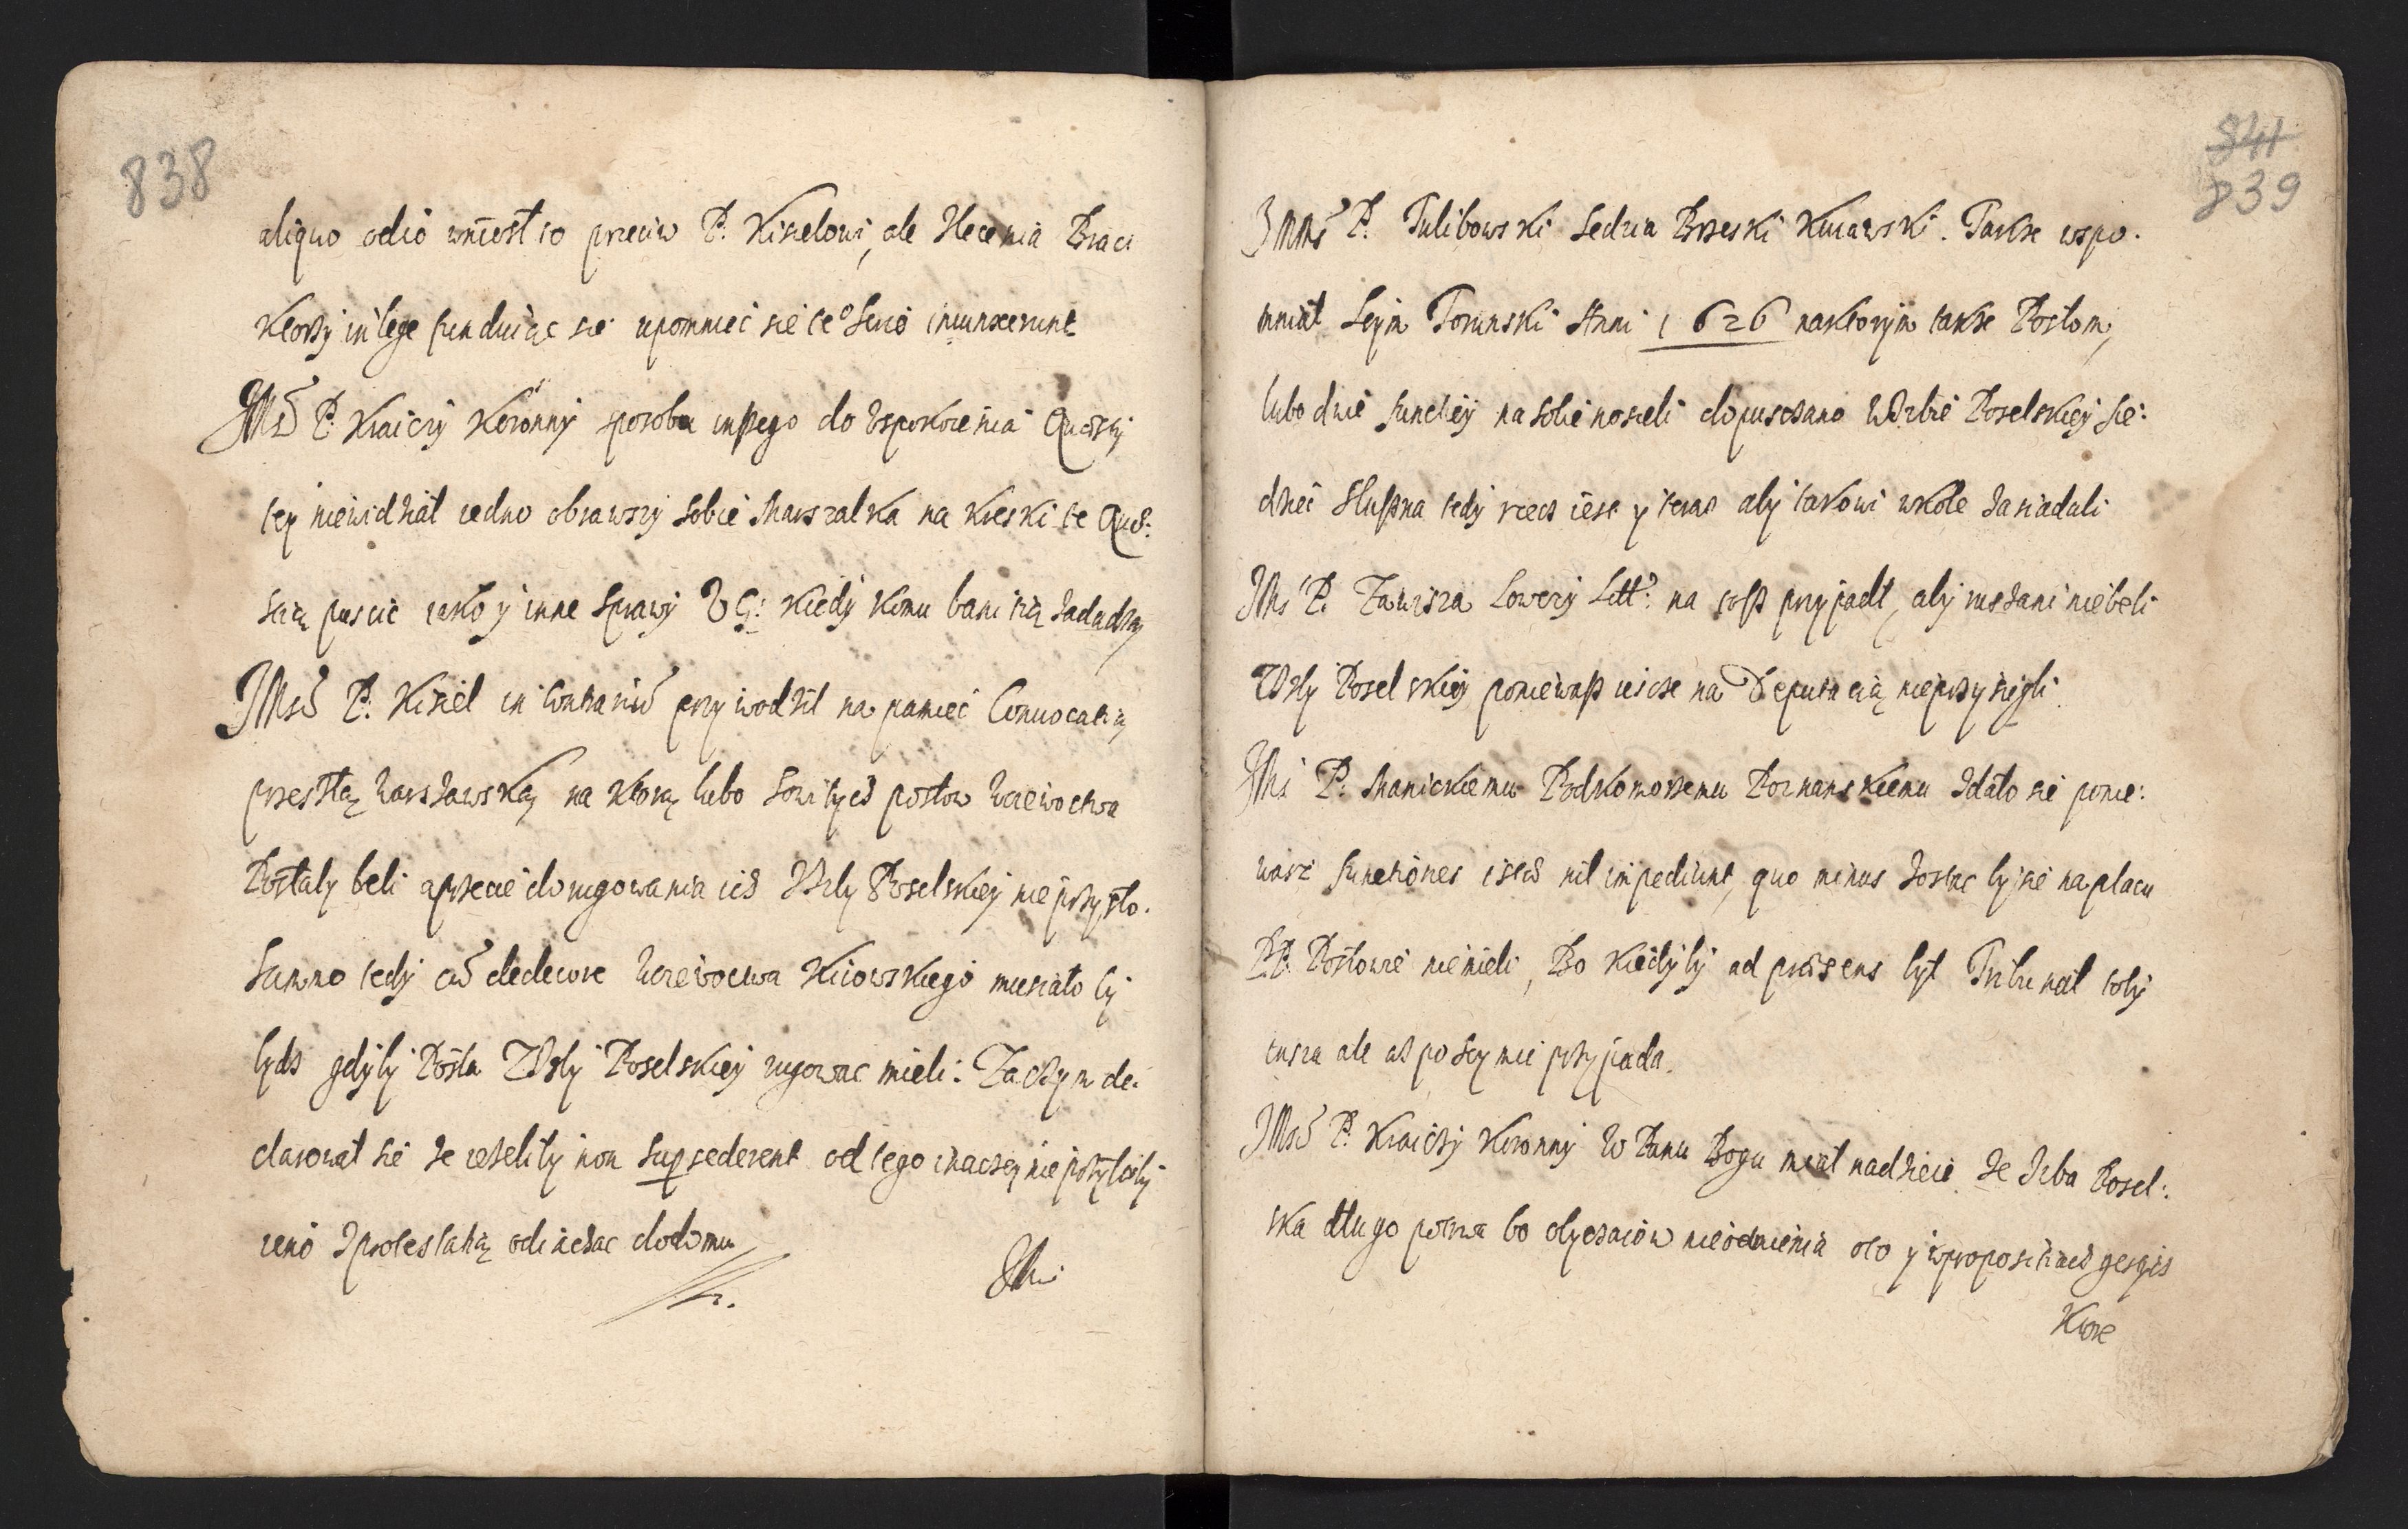 838
aliquo odio wniosł to przeciw P. Kisielowi, ale Zlecenia Braci
Ktorzy in lege funduiąc sie upomnieć sie te° serio iniunxerunt
JMsć P. Kraiczy Koronny sposobu inszego do Uspokoienia Quæstÿ
tey niewidział iedno obrawszy sobie Marszalka na Kreski te Quæ:
stią puscic iako y inne sprawy kiedy komu banitią zadadzą
JMsć P. Kisiel in contrariū przywodził na pamieć Conuocatią
przeszłą Warszawską na ktorą lubo sowitych posłow Woiewoctwa
Posłaly beli a przecie do rugowania ich Izby Poselskiey nie przyszło.
Summo tedy cū dedecore Woiewoctwa Kiiowskiego musiało by
bydz gdyby Posła Z Izby Poselskiey rugowac mieli: Zaczym de:
clarował sie ze iezeliby non supsederent od tego inaczey nie przyszłoby
ieno z protestatią odiachac do domu
JMsć
841
839
JMsć P. Tulibowski Sedzia Brzeski Kuiawski. Takze wspo:
mniał Seym Torunski Anni 1626 naktorym takze Posłom,
lubo dwie functiey na sobie nosieli dopusczano W Izbie Poselskiey sie:
dzieć Słuszna tedy rzecz iest y teraz aby takowi wkole zasiadali
JMs P. Zawisza Lowczy Litt: na tosz przypadł, aby ruszani niebeli
Z Izby Poselskiey poniewasz iescze na Deputacią nieprzysięgli.
JMs P. Manickiemu Podkomorzemu Poznanskiemu Zdało sie ponie:
wasz functiones istæ nil impediunt, quo minus zostac by sie na placu
PP. Posłowie nie mieli, Bo kiedyby ad præsens był Tribunał toby
insza ale asz po Seymie przypada.
JMsć P. Kraiczy Koronny W Panu Bogu miał nadzieie ze Izba Posel:
ska długo potrwa bo obyczaiow nieodmienia oto y w propositiach gesgis
Ktore